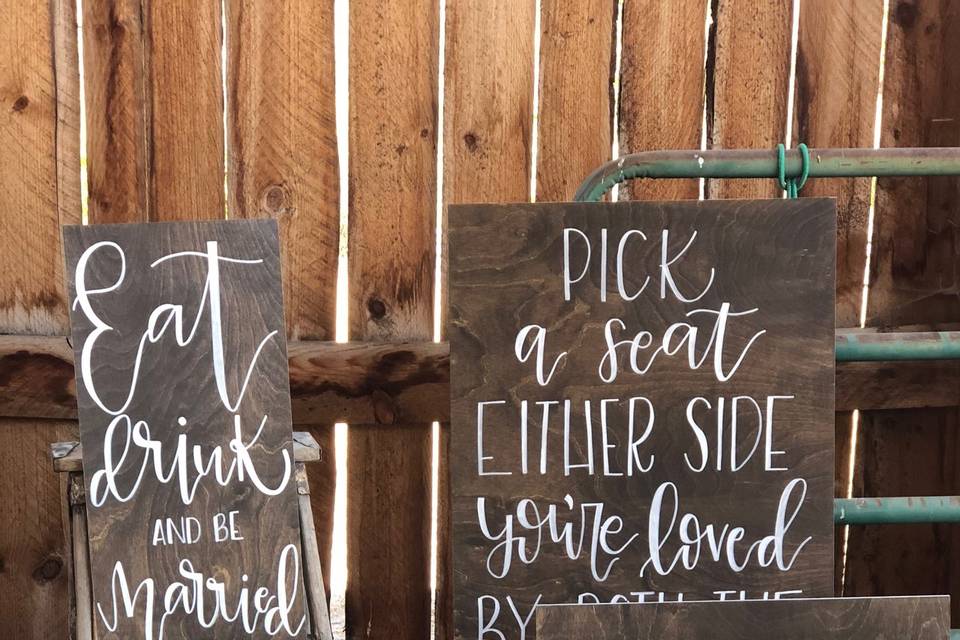 Eat
drink
AND BE
Married
PICK
a seat
EITHER SIDE
you're loved
BY BOTH THE